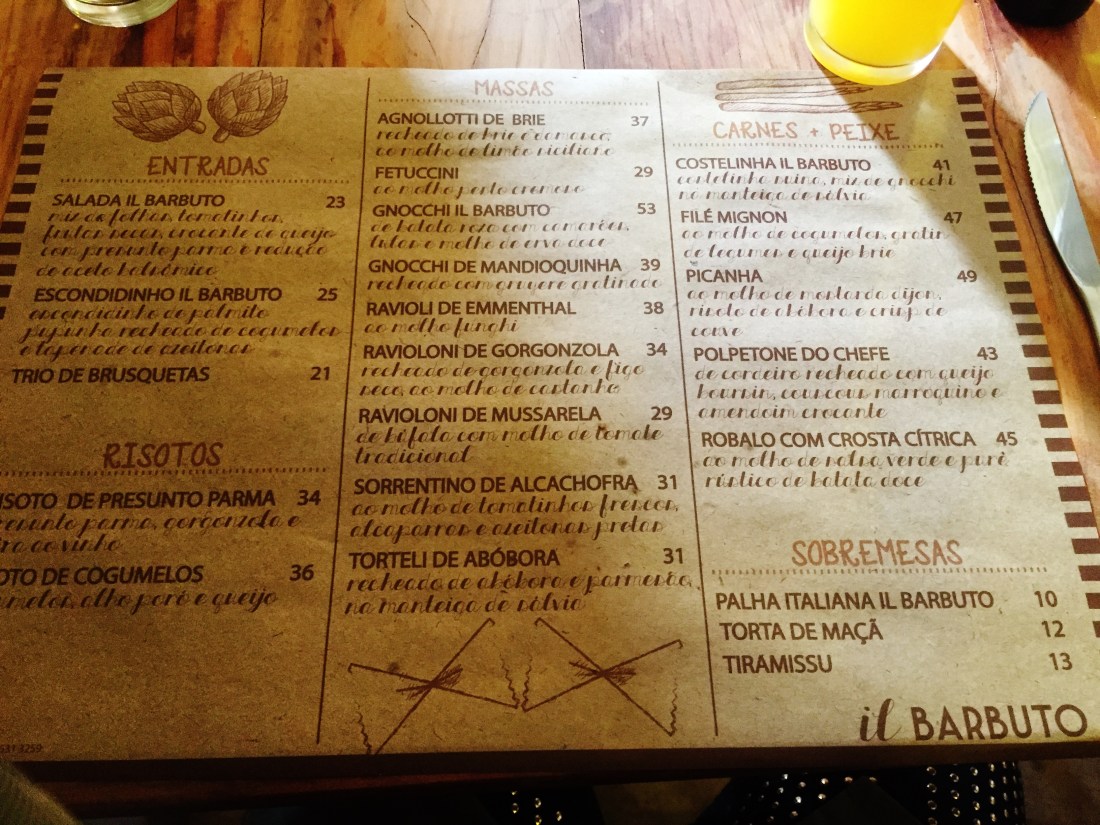 ENTRADAS
SALADA IL BARBUTO 23
mix de folhas, tomatinhos,
frutas secas, crocante de queijo
com presunto parma e redução
de aceto balsâmico
ESCONDIDINHO IL BARBUTO 25
escondidinho de palmito
pupunha recheado de cogumelos
e tapenade de azeitonas
TRIO DE BRUSQUETAS 21
RISOTOS
ISOTO DE PRESUNTO PARMA 34
presunto parma, gorgonzola e
ao vinho
OTO DE COGUMELOS 36
umelos, alho poró e queijo
531 3259
MASSAS
AGNOLLOTTI DE BRIE 37
recheado de brie e damasco,
ao molho de limão siciliano
FETUCCINI 29
ao molho pesto cremoso
GNOCCHI IL BARBUTO 53
de batata roxa com camarões,
lulas e molho de erva doce
GNOCCHI DE MANDIOQUINHA 39
recheado com gruyere gratinado
RAVIOLI DE EMMENTHAL 38
ao molho funghi
RAVIOLONI DE GORGONZOLA 34
recheado de gorgonzola e figo
seco, ao molho de castanha
RAVIOLONI DE MUSSARELA 29
de búfala com molho de tomate
tradicional
SORRENTINO DE ALCACHOFRA 31
ao molho de tomatinhos frescos,
alcaparras e azeitonas pretas
TORTELI DE ABÓBORA 31
recheado de abóbora e parmesão,
na manteiga de sálvia
CARNES + PEIXE
COSTELINHA IL BARBUTO 41
costelinha suína, mix de gnocchi
na manteiga de sálvia
FILÉ MIGNON 47
ao molho de cogumelos, gratin
de legumes e queijo brie
PICANHA 49
ao molho de mostarda dijon,
risoto de abóbora e crisp de
couve
POLPETONE DO CHEFE 43
de cordeiro recheado com queijo
boursin, couscous marroquino e
amendoim crocante
ROBALO COM CROSTA CÍTRICA 45
ao molho de salsa verde e purê
rústico de batata doce
SOBREMESAS
PALHA ITALIANA IL BARBUTO 10
TORTA DE MAÇÃ 12
TIRAMISSU 13
il BARBUTO